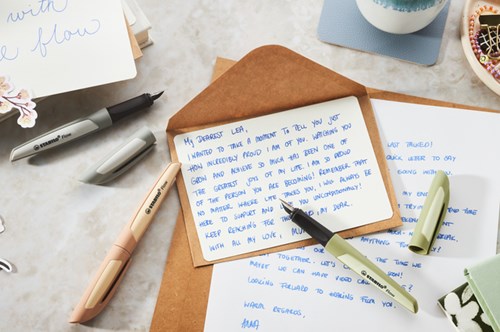 with
e flow
STABILO Flow
STABILO Flow
My dearest Lea,
I wanted to take a moment to tell you just
how incredibly proud I am of you. Watching you
grow and achieve so much has been one of
the greatest joys of my life. I am so proud
of the person you are becoming! Remember that
no matter where life takes you, I will always be
here to support and you unconditionally!
Keep reaching for the , my dear.
With all my love, Mum
STABILO Flow
last talked!
quick letter to say
going with
my
time
break,
anything
together. Let's the time we
maybe we can have video call soon!
Looking forward to hearing from you.
Warm regards,
Anna